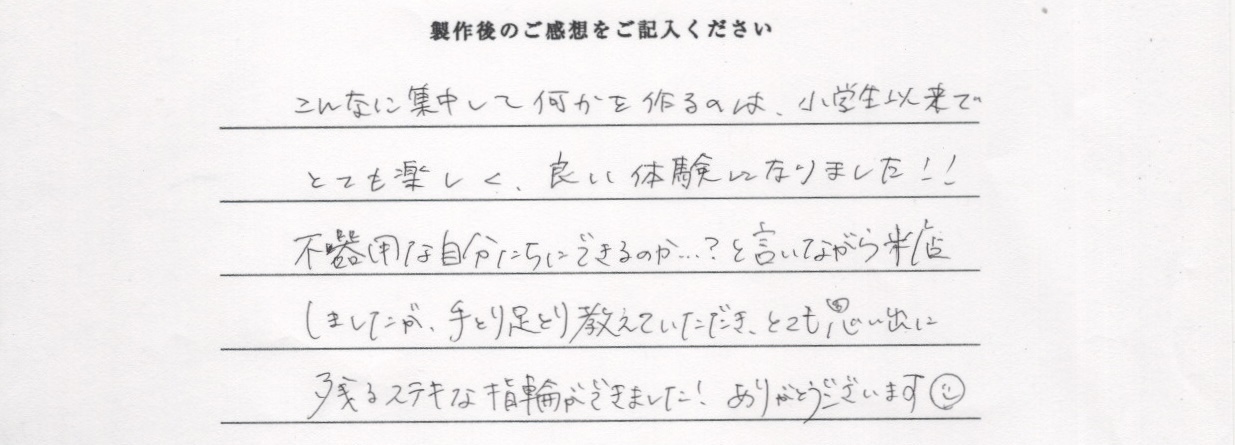 製作後のご感想をご記入ください
こんなに集中して何かを作るのは、小学生以来で
とても楽しく、良い体験になりました!!
不器用な自分たちにできるのか…?と言いながら来店
しましたが、手とり足とり教えていただき、とても思い出に
残るステキな指輪ができました!ありがとうございます☺